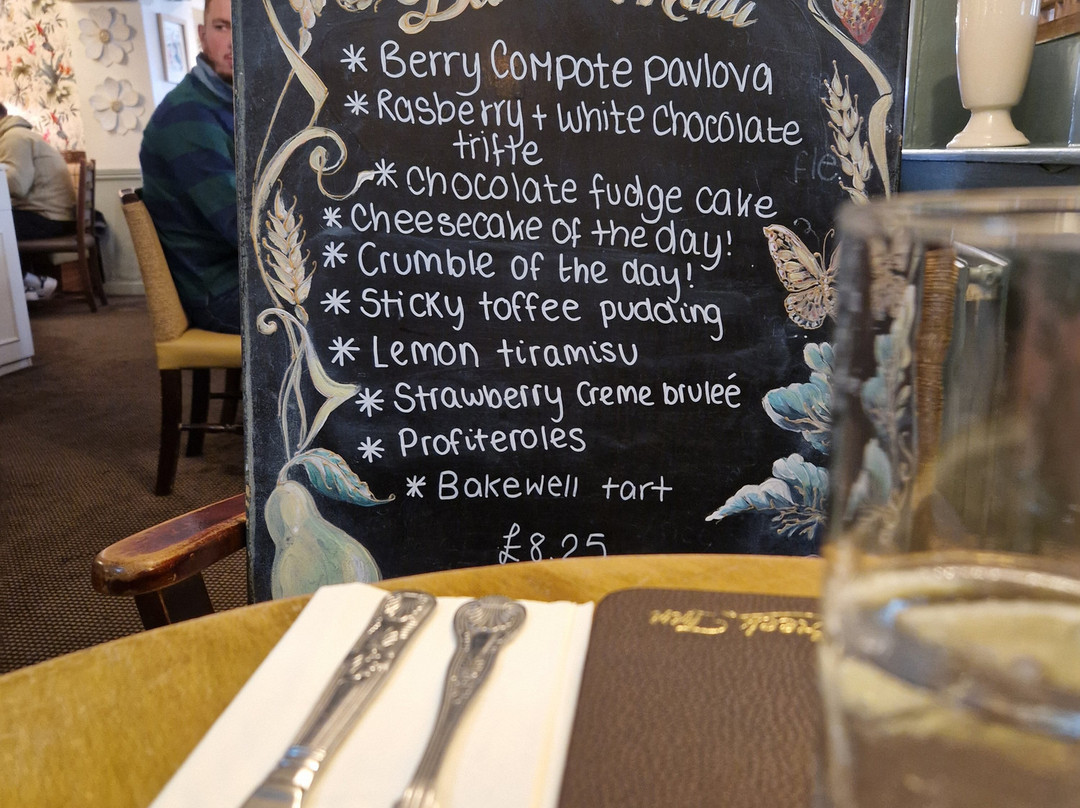 Menu
* Berry Compote pavlova
* Rasberry + White Chocolate
trifle
* Chocolate fudge cake
* Cheesecake of the day!
* Crumble of the day!
* Sticky toffee pudding
* Lemon tiramisu
* Strawberry Creme bruleé
* Profiteroles
* Bakewell tart
£8.25
Inn